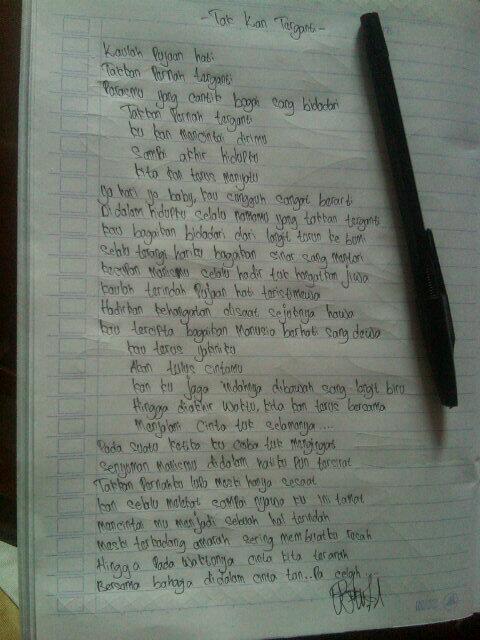 - Tak Kan Terganti -
Kaulah Pujaan hati
Takkan Pernah terganti
Parasmu yang cantik bagai sang bidadari
Takkan Pernah terganti
ku kan mencintai dirimu
Sampai akhir hidupku
kita kan terus menyatu
ya kari ya baby, kau sungguh sangat berarti
Didalam hidupku selalu namamu yang takkan terganti
kau bagaikan bidadari dari langit turun ke bumi
selalu terangi hariku bagaikan sinar sang mentari
kecupan Manismu selalu hadir tuk hangatkan jiwa
kaulah terindah Pujaan hati teristimewa
Hadirkan kehangatan disaat sejuknya hawa
kau tercipta bagaikan Manusia berhati sang dewa
kau terus yakinku
Akan tulus cintamu
kan ku jaga indahnya dibawah sang langit biru
Hingga diakhir waktu, kita kan terus bersama
Menjalani cinta tuk selamanya ....
Pada suatu ketika ku coba tuk mengingat
senyuman manismu didalam hatiku Pun tersirat
Takkan Pernahku lupa meski hanya sesaat
kan selalu melekat sampai nyawa ku ini tamat
mencintai mu menjadi sebuah hal terindah
meski terkadang amarah sering membuatku resah
Hingga Pada waktunya cinta kita terarah
Bersama bahagia didalam cinta tan..Pa celah ...